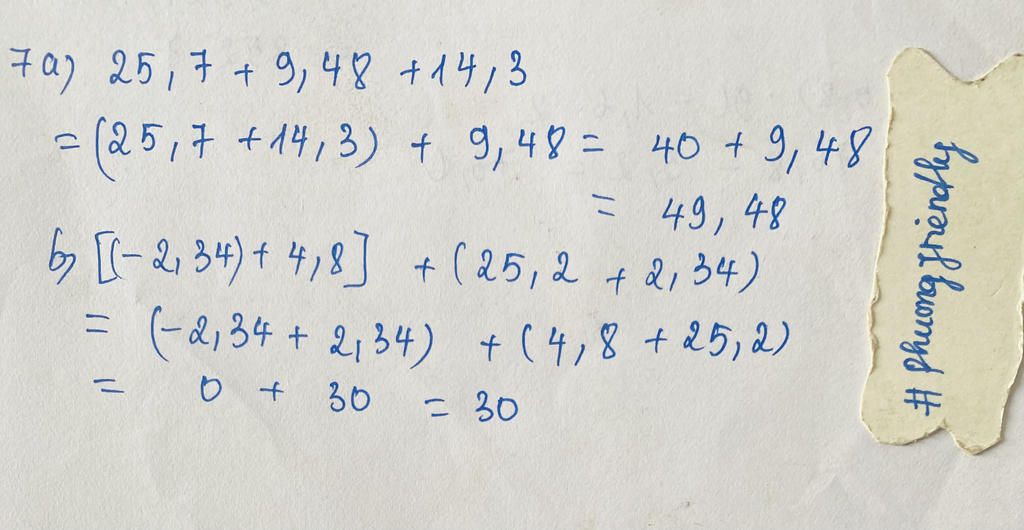 7a) 25,7 + 9,48 + 14,3
= (25,7 + 14,3) + 9,48 = 40 + 9,48
= 49,48
b) [(-2,34) + 4,8] + (25,2 + 2,34)
= (-2,34 + 2,34) + (4,8 + 25,2)
= 0 + 30 = 30
# phuongfriendly